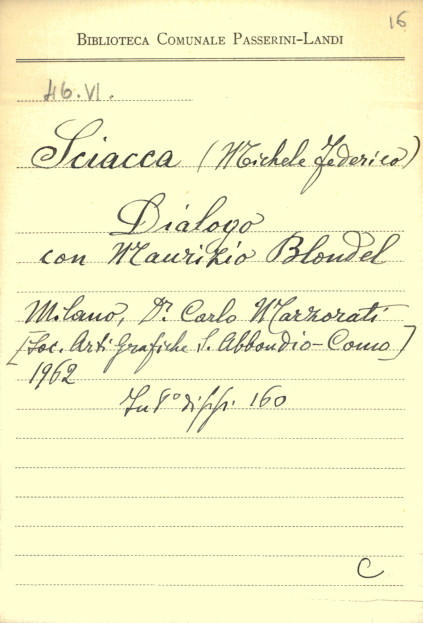 16
BIBLIOTECA COMUNALE PASSERINI-LANDI
46.VI.
Sciacca (Michele Federico)
Dialogo
con Maurizio Blondel
Milano, Dr. Carlo Marzorati
[Soc. Arti Grafiche S. Abbondio-Como]
1962
In 8° di pp. 160
C